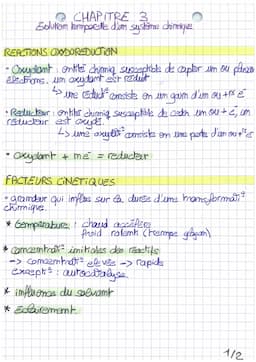 CHAPITRE 3
Evolution temporelle d'un système chimique
REACTIONS OXYDOREDUCTION
• Oxydant : entité chimiq susceptible de capter un ou plusieurs
électrons, un oxydant est réduit
↳ une réduc° consiste en un gain d'un ou + é
• Réducteur : entité chimiq susceptible de céder un ou + é, un
réducteur est oxydé.
↳ une oxydat° consiste en une perte d'un ou + é
• Oxydant + mé = réducteur
FACTEURS CINETIQUES
• grandeur qui influe sur la durée d'une transformat°
chimique.
* température : chaud accélère
froid ralenti
* concentrat° initiales des réactifs
-> concentrat° élevés -> rapide
except° : autocatalyse
* influence du solvant
* éclairement
1/2